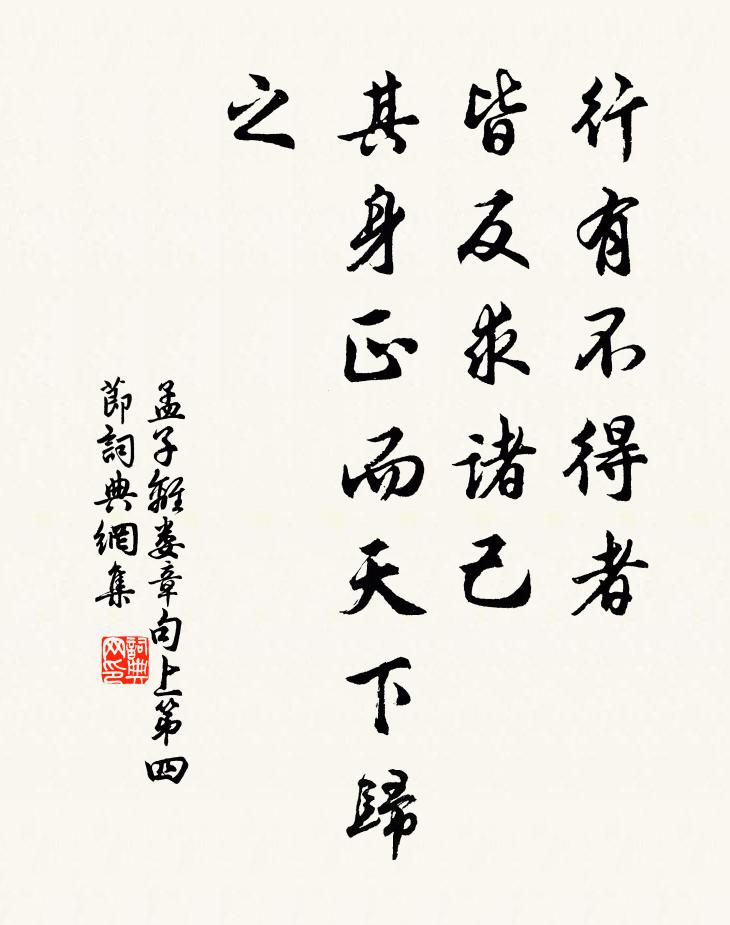 行有不得者
皆反求諸己
其身正而天下歸
之
孟子離娄章句上第四
節詞典網集
詞典网印